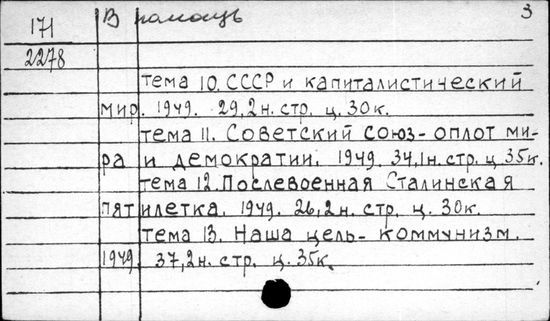 171 В помощь 3
2278
тема 10. СССР и капиталистический
мир. 1949. 29,2н. стр. ц. 30к.
тема 11. Советский союз - оплот ми-
ра и демократии. 1949. 34,1н. стр. ц 35к.
тема 12. Послевоенная Сталинская
пятилетка. 1949. 26,2н. стр. ц. 30к.
тема 13. Наша цель - коммунизм.
1949. 37,2н. стр. ц. 35к.